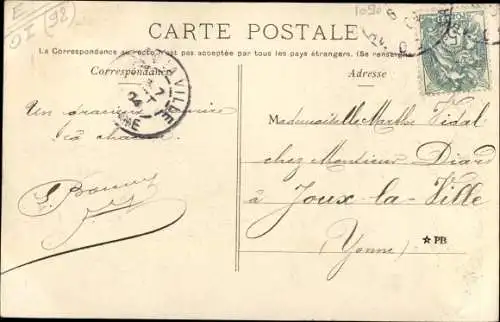 E
OI (98)
1090
CARTE POSTALE
La Correspondance au recto n'est pas acceptée par tous les pays étrangers. (Se renseigner
Correspondance
Adresse
Un gracieux
à
Mademoiselle Marthe Vidal
chez Monsieur Diard
à Joux-la-Ville
(Yonne)
PB